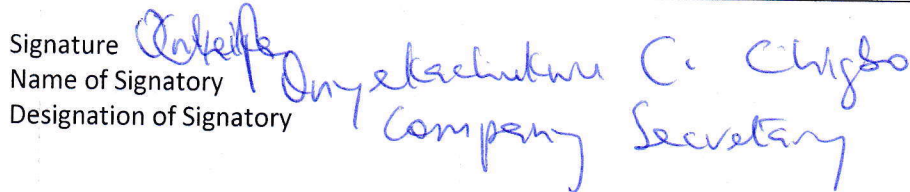 Signature
Name of Signatory Onyekachukwu C. Chigbo
Designation of Signatory Company Secretary